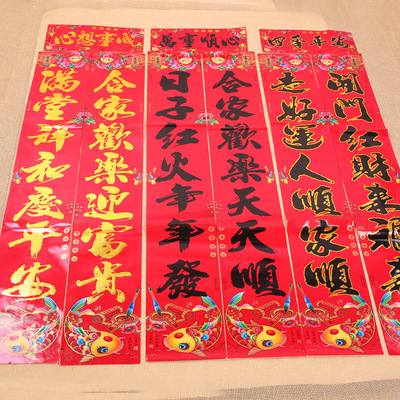 心想事成
合家歡樂迎富貴
滿堂祥和慶平安
萬事順心
合家歡樂天天順
日子紅火年年發
四季平安
開門紅財來福來
走好運人順家順